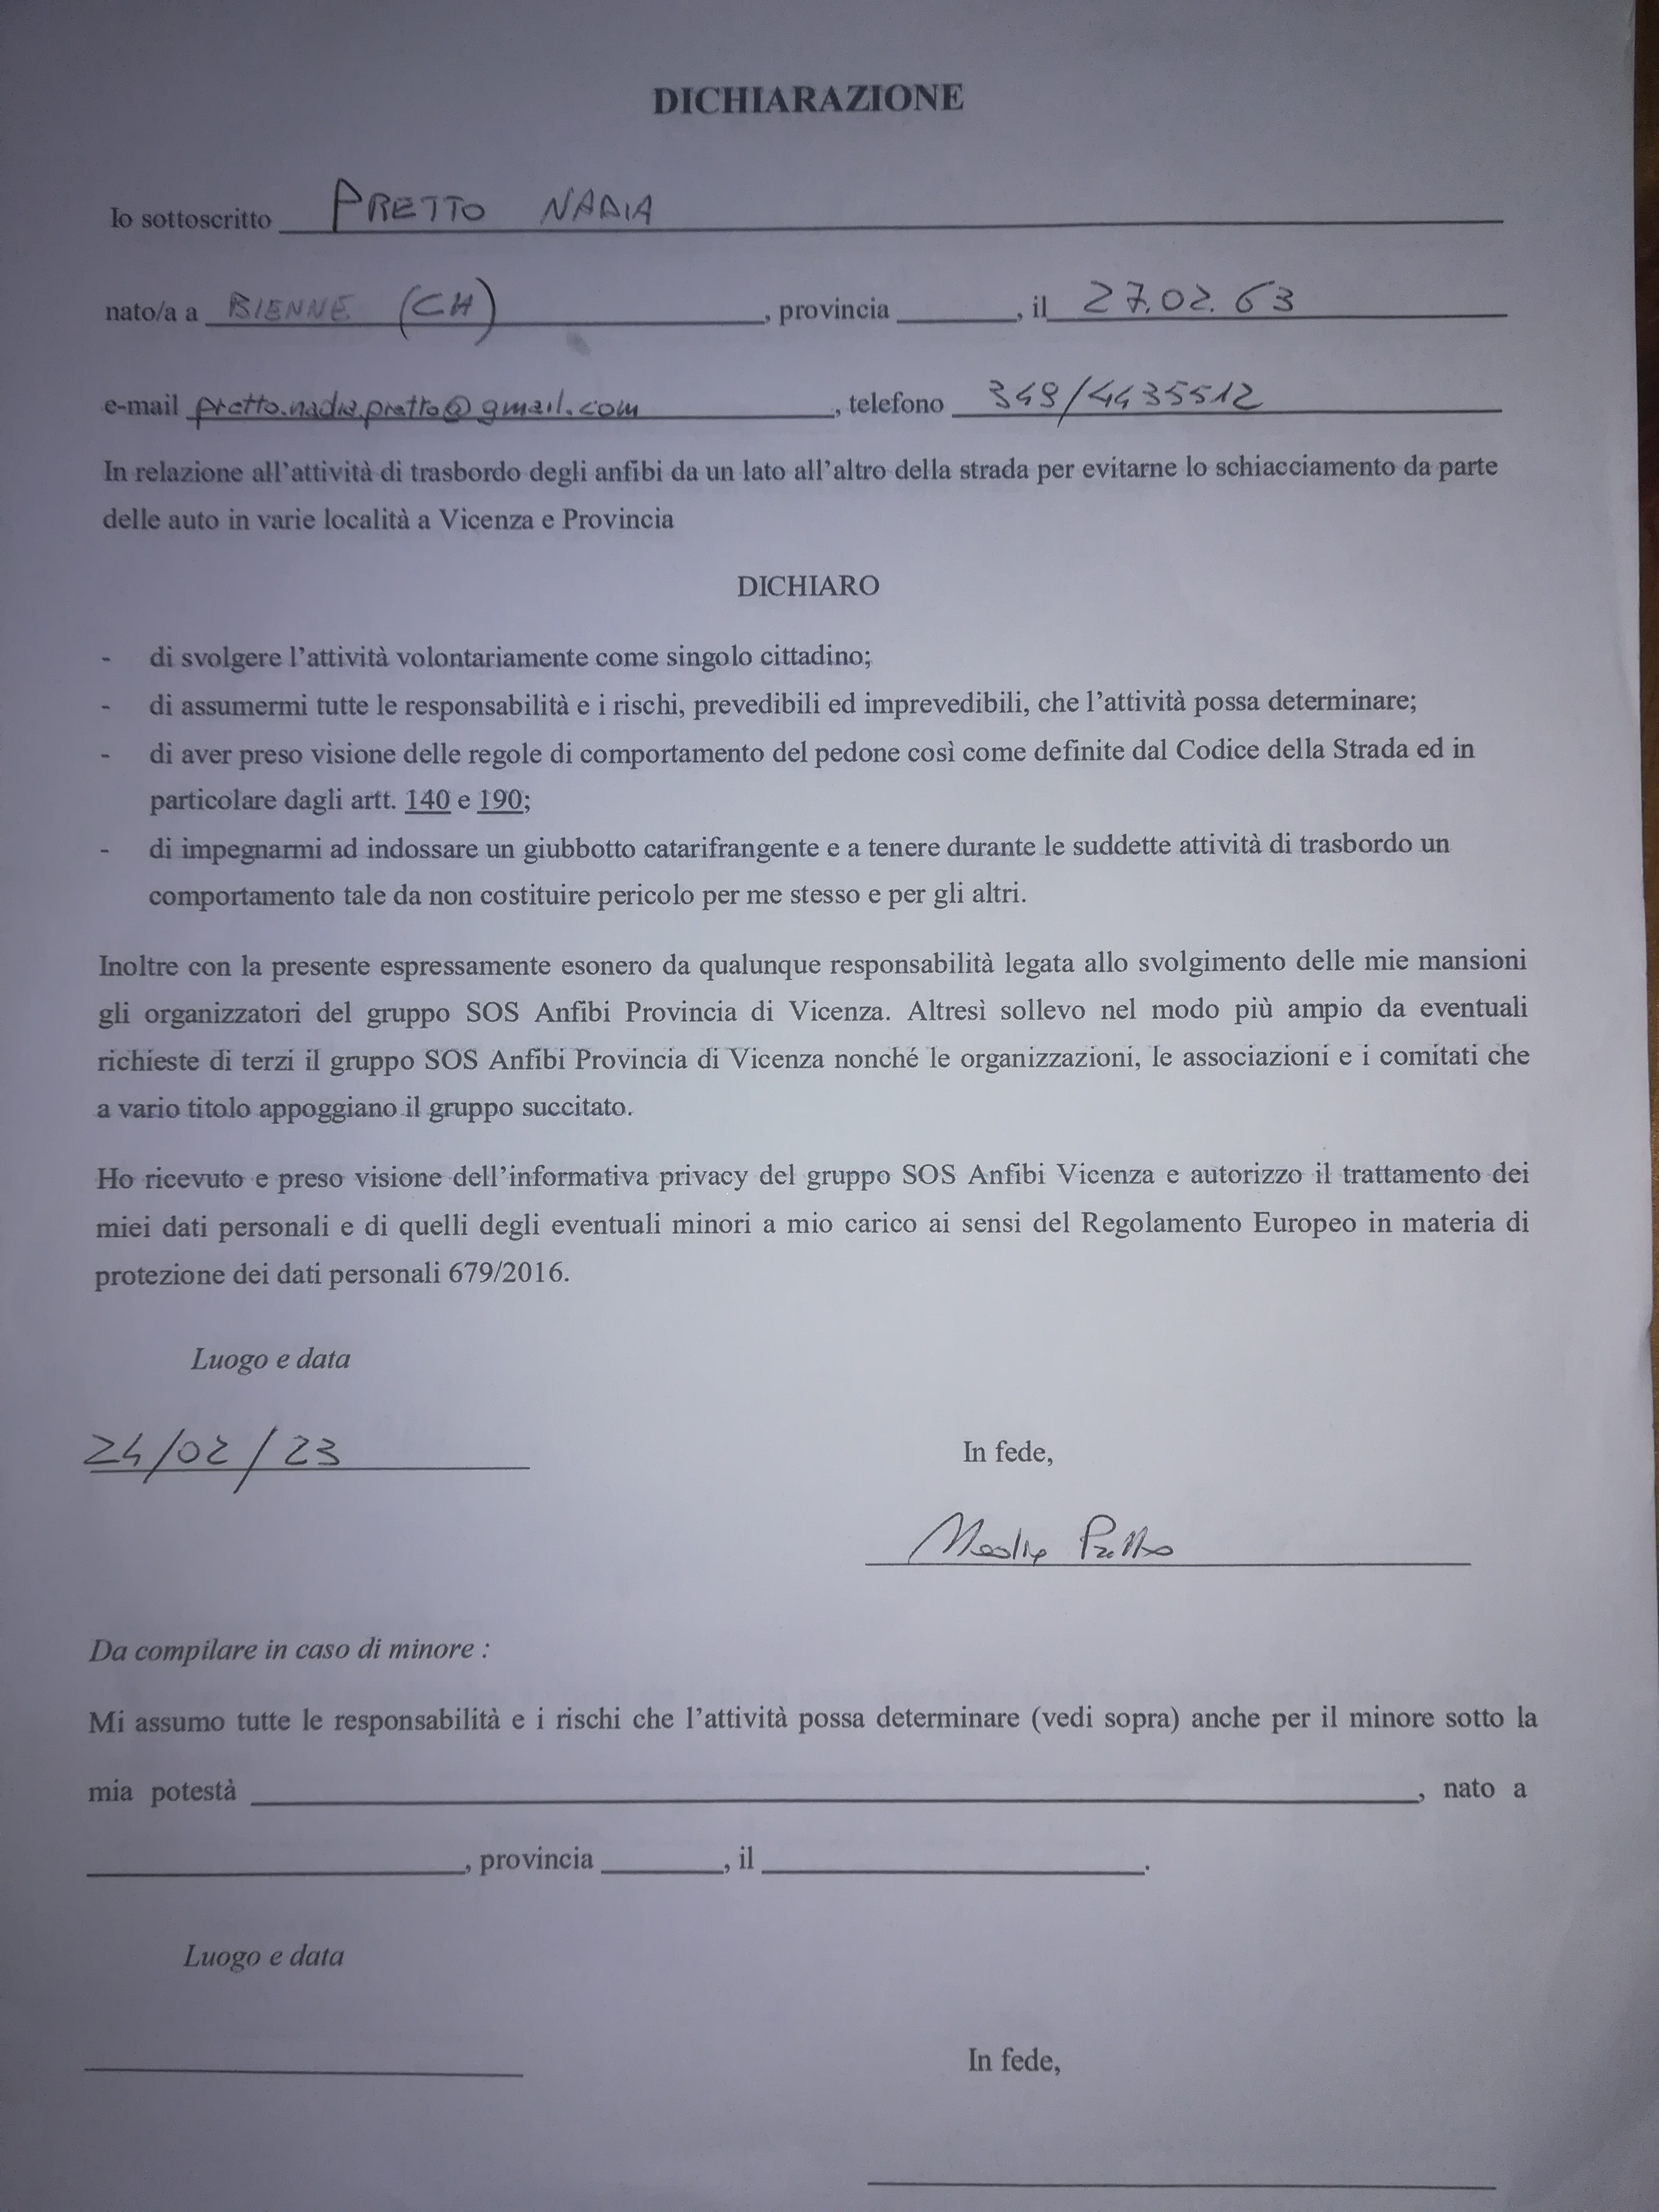 DICHIARAZIONE
Io sottoscritto PRETTO NADIA
nato/a a BIENNE (CH), provincia ______, il 27.02.63
e-mail pretto.nadia.pretto@gmail.com, telefono 349/4435512
In relazione all'attività di trasbordo degli anfibi da un lato all'altro della strada per evitarne lo schiacciamento da parte
delle auto in varie località a Vicenza e Provincia
DICHIARO
- di svolgere l'attività volontariamente come singolo cittadino;
- di assumermi tutte le responsabilità e i rischi, prevedibili ed imprevedibili, che l'attività possa determinare;
- di aver preso visione delle regole di comportamento del pedone così come definite dal Codice della Strada ed in
particolare dagli artt. 140 e 190;
- di impegnarmi ad indossare un giubbotto catarifrangente e a tenere durante le suddette attività di trasbordo un
comportamento tale da non costituire pericolo per me stesso e per gli altri.
Inoltre con la presente espressamente esonero da qualunque responsabilità legata allo svolgimento delle mie mansioni
gli organizzatori del gruppo SOS Anfibi Provincia di Vicenza. Altresì sollevo nel modo più ampio da eventuali
richieste di terzi il gruppo SOS Anfibi Provincia di Vicenza nonché le organizzazioni, le associazioni e i comitati che
a vario titolo appoggiano il gruppo succitato.
Ho ricevuto e preso visione dell'informativa privacy del gruppo SOS Anfibi Vicenza e autorizzo il trattamento dei
miei dati personali e di quelli degli eventuali minori a mio carico ai sensi del Regolamento Europeo in materia di
protezione dei dati personali 679/2016.
Luogo e data
24/02/23
In fede,
Nadia Pretto
Da compilare in caso di minore :
Mi assumo tutte le responsabilità e i rischi che l'attività possa determinare (vedi sopra) anche per il minore sotto la
mia potestà ______, nato a
______, provincia ______, il ______.
Luogo e data
In fede,